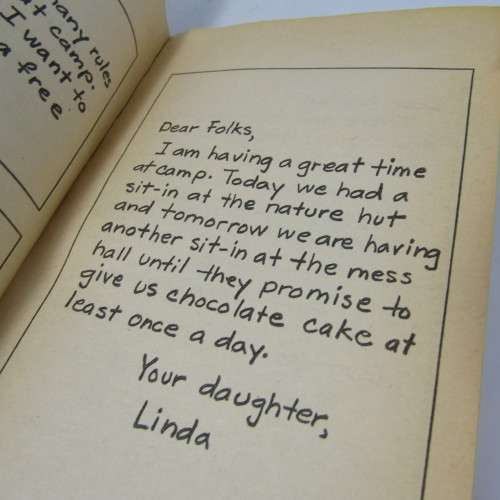 many rules
at camp.
I want to
a free
Dear Folks,
I am having a great time
at camp. Today we had a
sit-in at the nature hut
and tomorrow we are having
another sit-in at the mess
hall until they promise to
give us chocolate cake at
least once a day.
Your daughter,
Linda